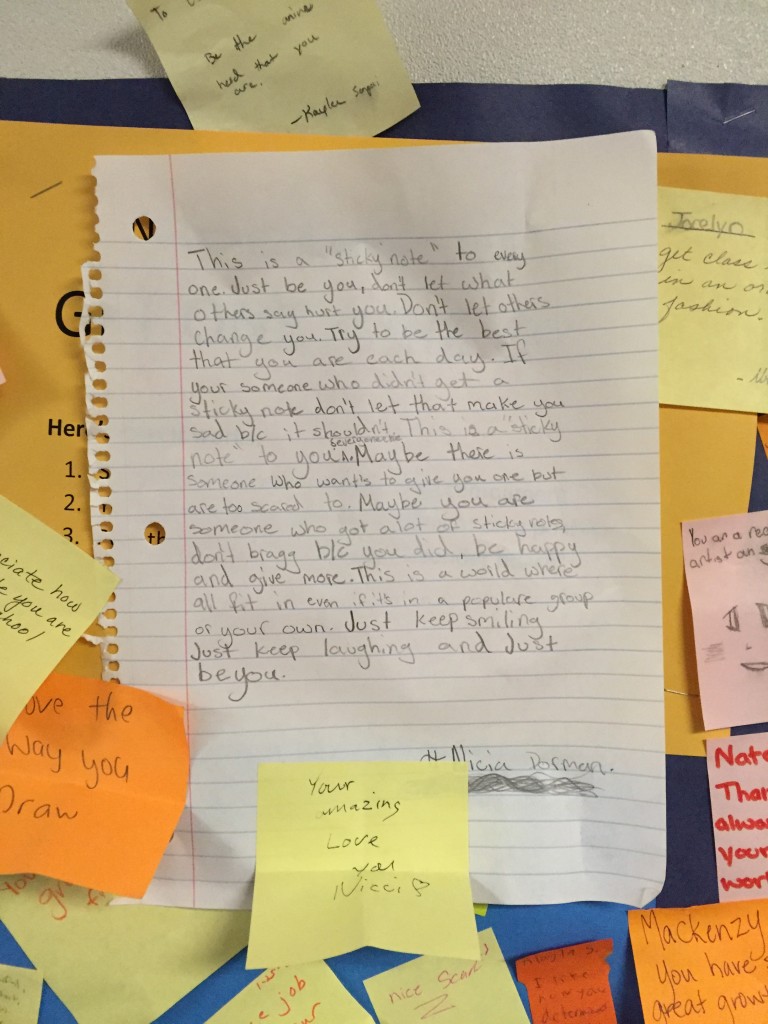 To
Be the anime
nerd that you
are.
This is a "sticky note" to every
one. Just be you, don't let what
others say hurt you. Don't let others
change you. Try to be the best
that you are each day. If
your someone who didn't get a
sticky note don't let that make you
sad b/c it shouldn't. This is a "sticky
note" to you. Maybe there is
someone who wants to give you one but
are too scared to. Maybe you are
someone who got alot of sticky
don't bragg b/c you did, be happy
and give more. This is a world where
all fit in even if its in a populare group
or your own. Just keep smiling
Just keep laughing and Just
be you.
Dorman.
Your
amazing
Love
you
Nicci
G
Her
1.
2.
3.
th
Jorelyn
get class
in an or
fashion.
ciate how
e you are
hool
ove the
way you
Draw
You are a rea
artist an
Note
Than
alwa
your
wor
Mackenzy
You have
great grow
nice
e job
I like
how you